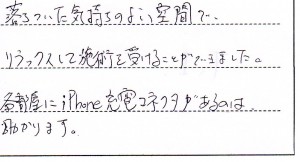 落ちついた気持ちのよい空間で、
リラックスして施術を受けることができました。
各部屋にiPhone充電コネクタがあるのは
助かります。